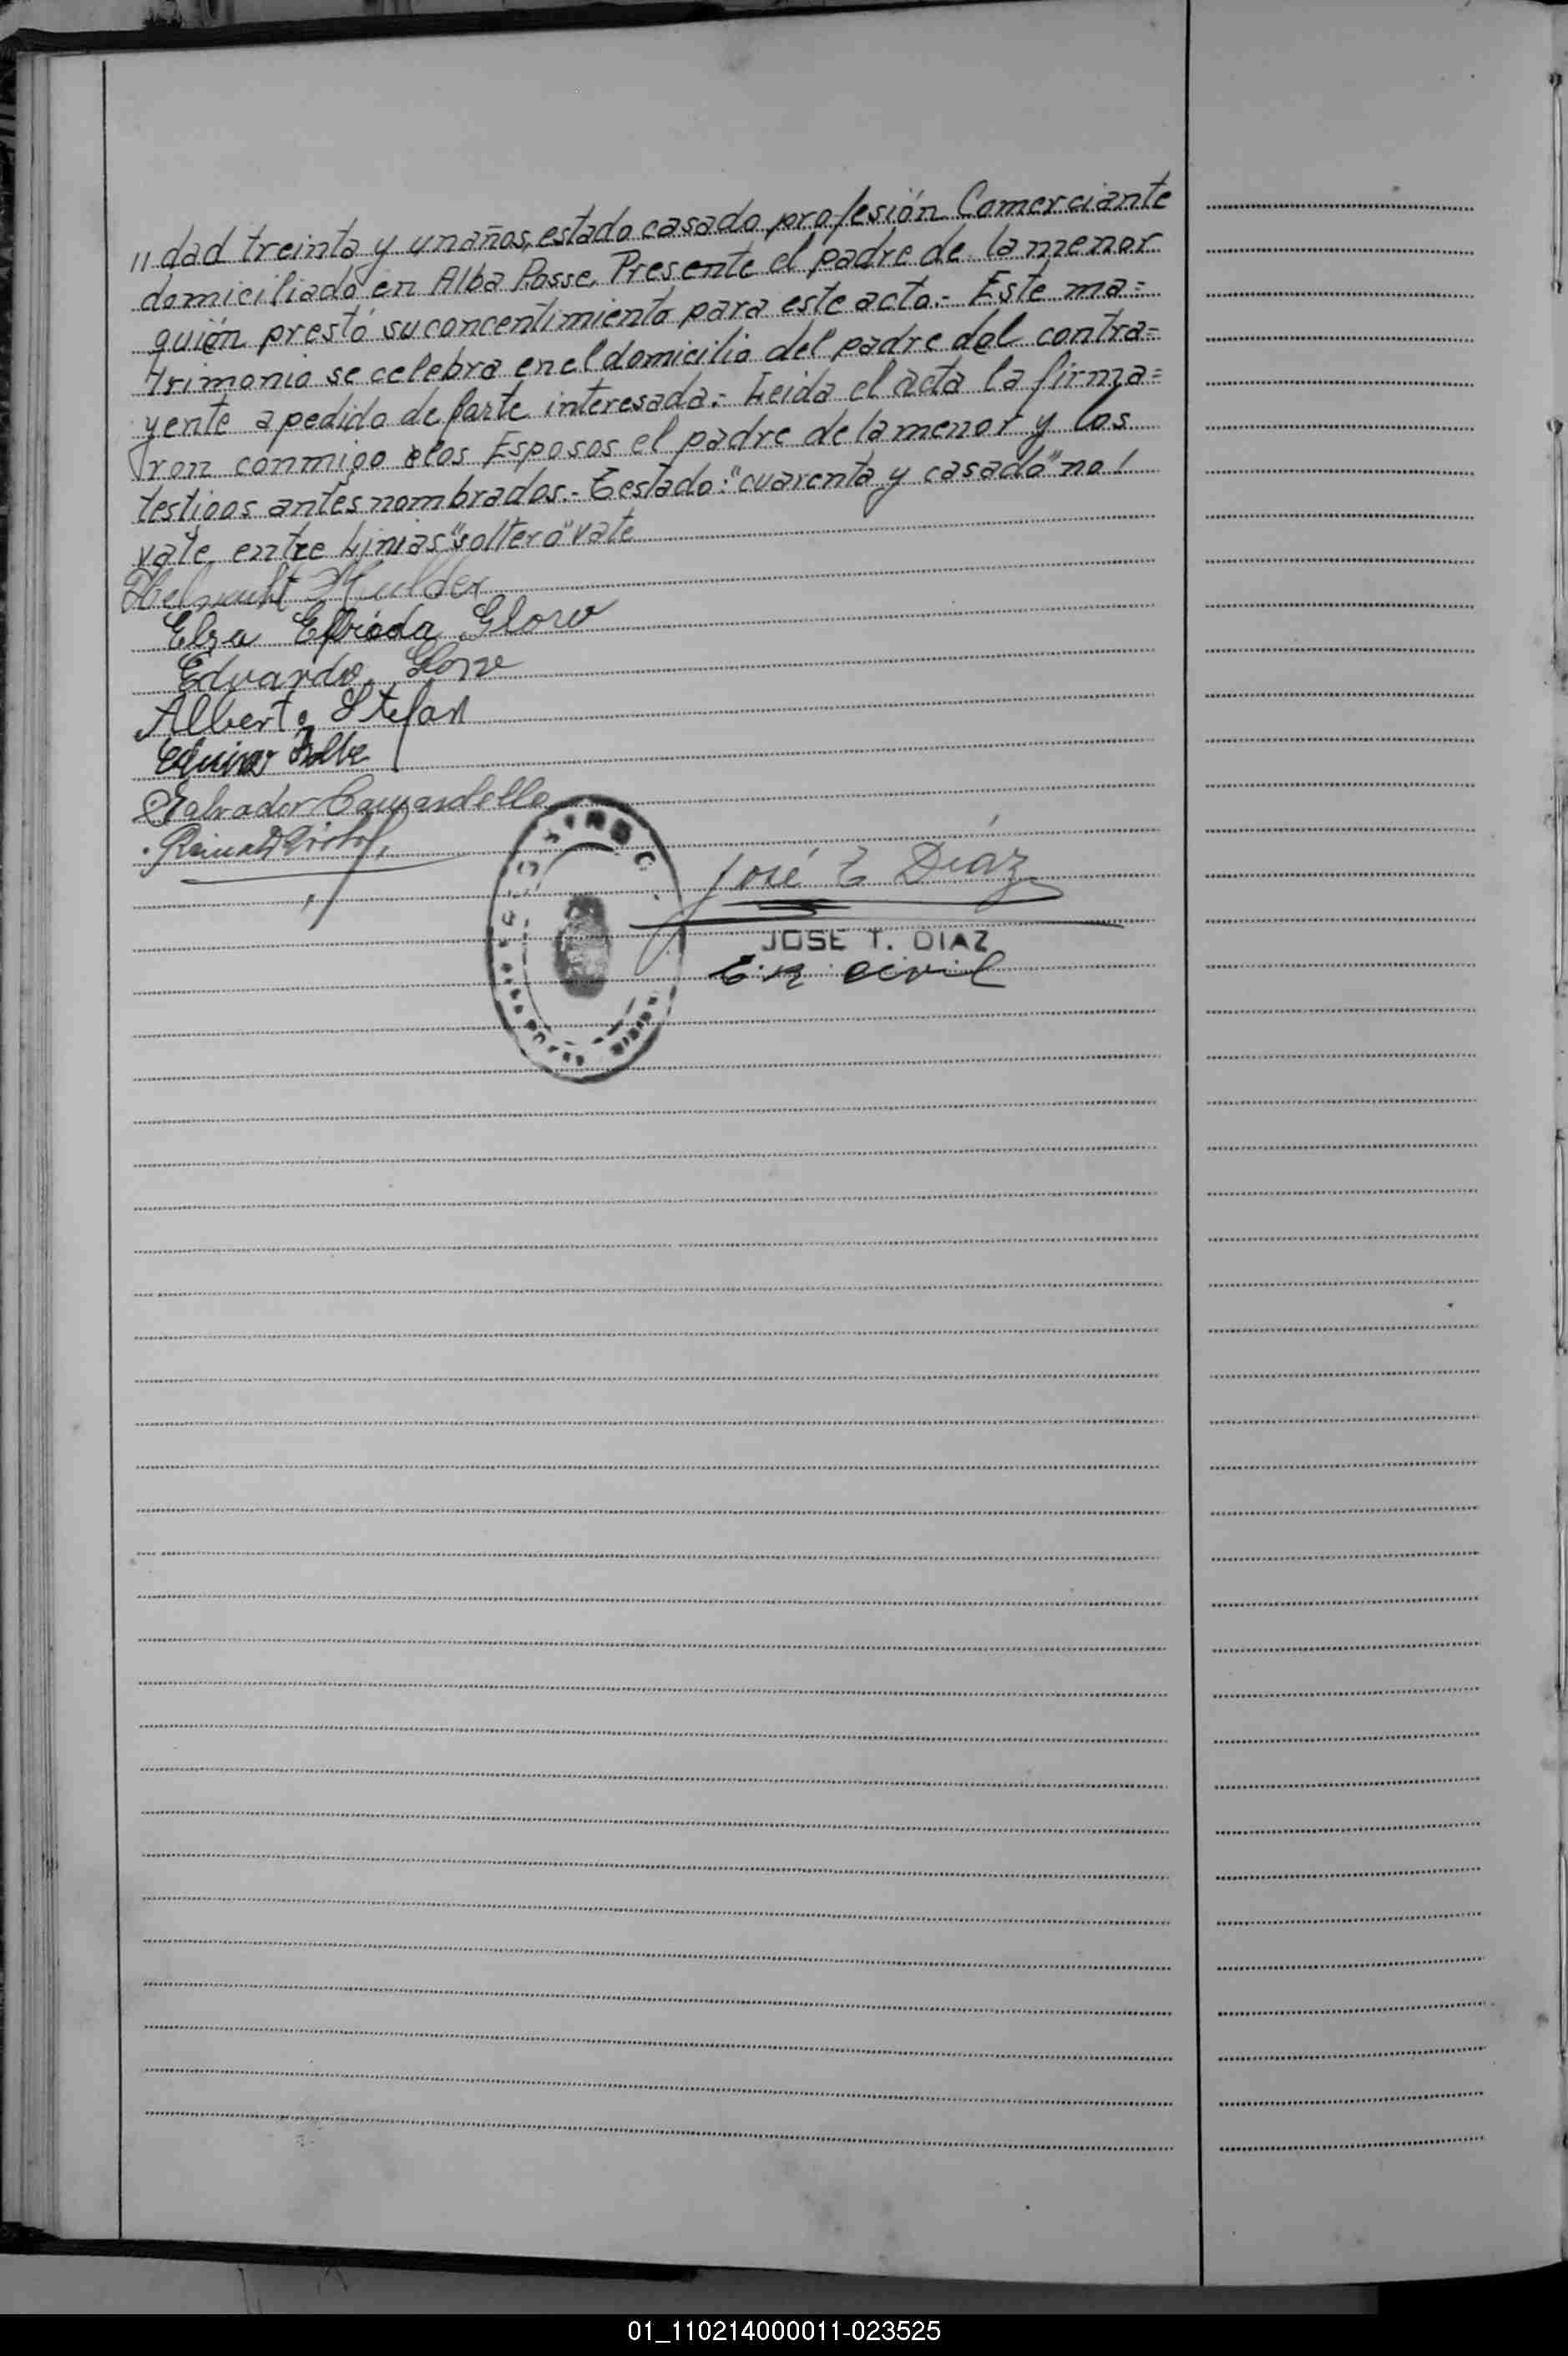 " dad treinta y un años, estado casado profesión Comerciante
domiciliado en Alba Posse. Presente el padre de la menor
quién prestó su concentimiento para este acto.- Este ma=
trimonio se celebra en el domicilio del padre del contra=
yente a pedido de parte interesada.- Leida el acta la firma=
ron conmigo los Esposos el padre de la menor y los
testigos antes nombrados.- Testado: "cuarenta y casado" no /
vale, entre Linias "soltero" vale
Helmuht Mulder
Elza Elfrida Glorv
Eduardo
Alberto Stefan
Salvador
José T. Diaz
JOSE T. DIAZ
E. R. Civil
01_110214000011-023525